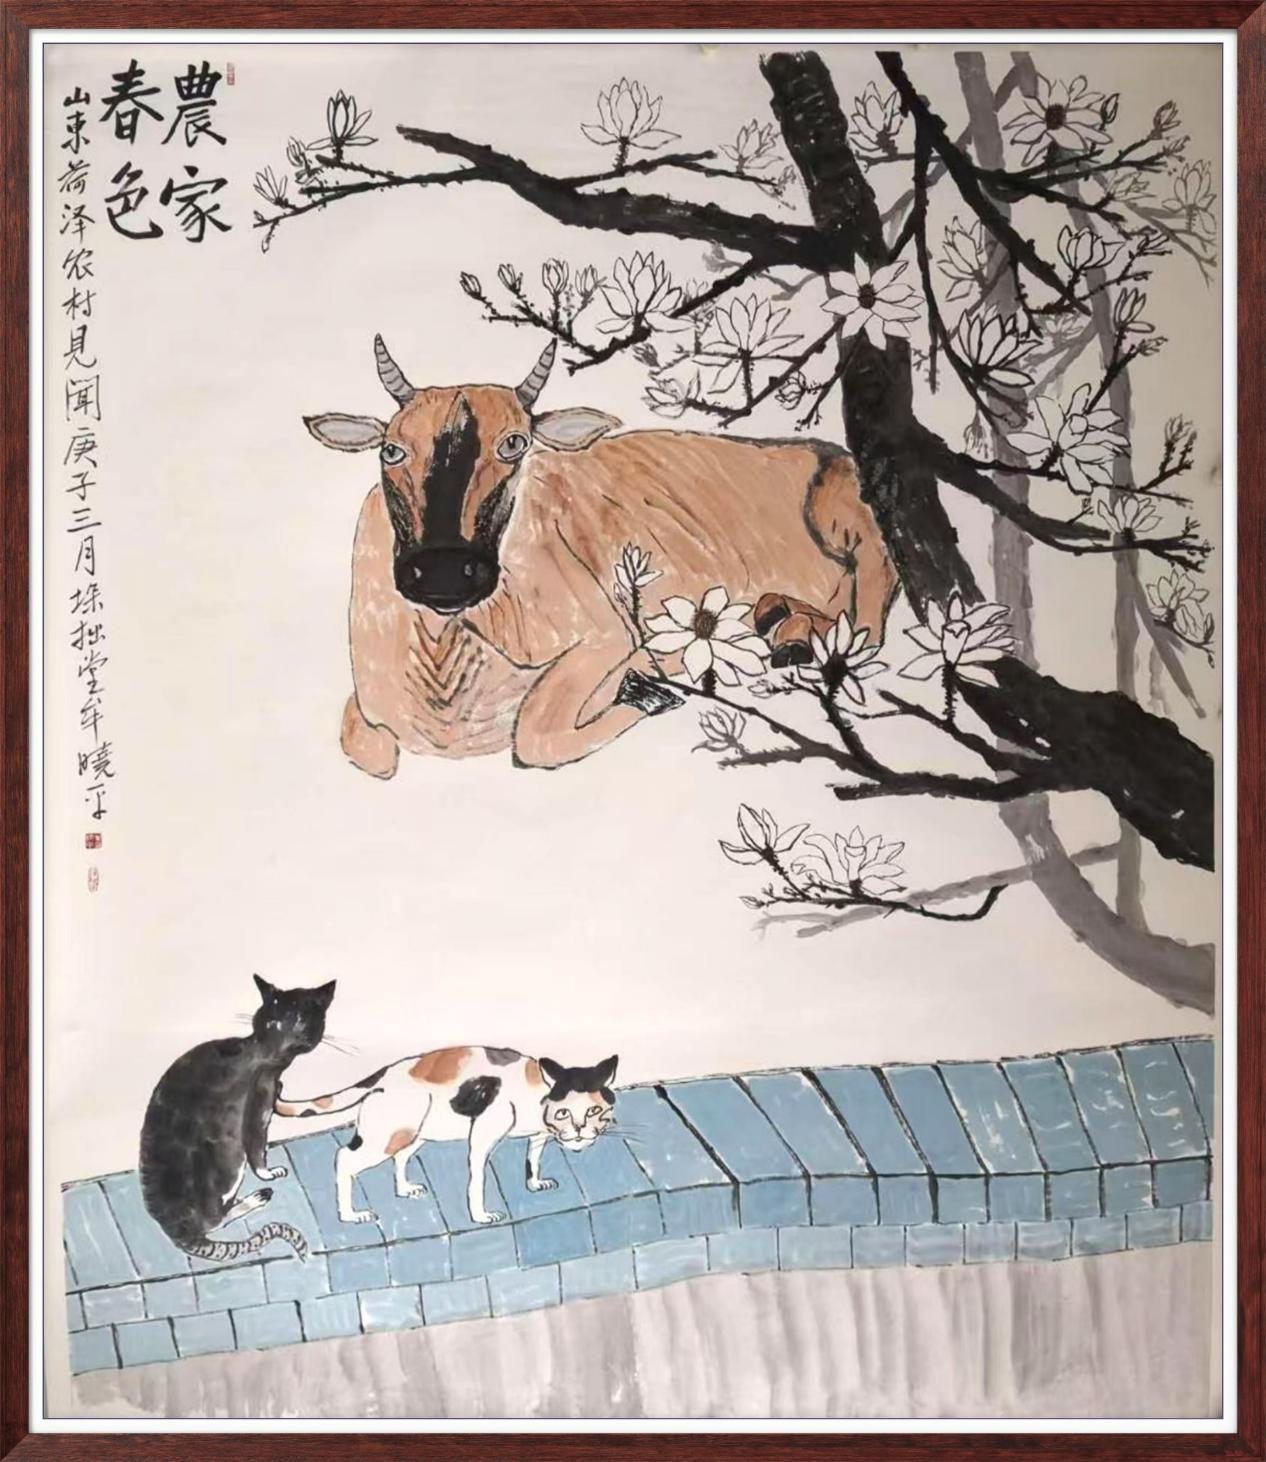 農家
春色
山東菏泽农村見聞庚子三月垛拙堂牟曉平